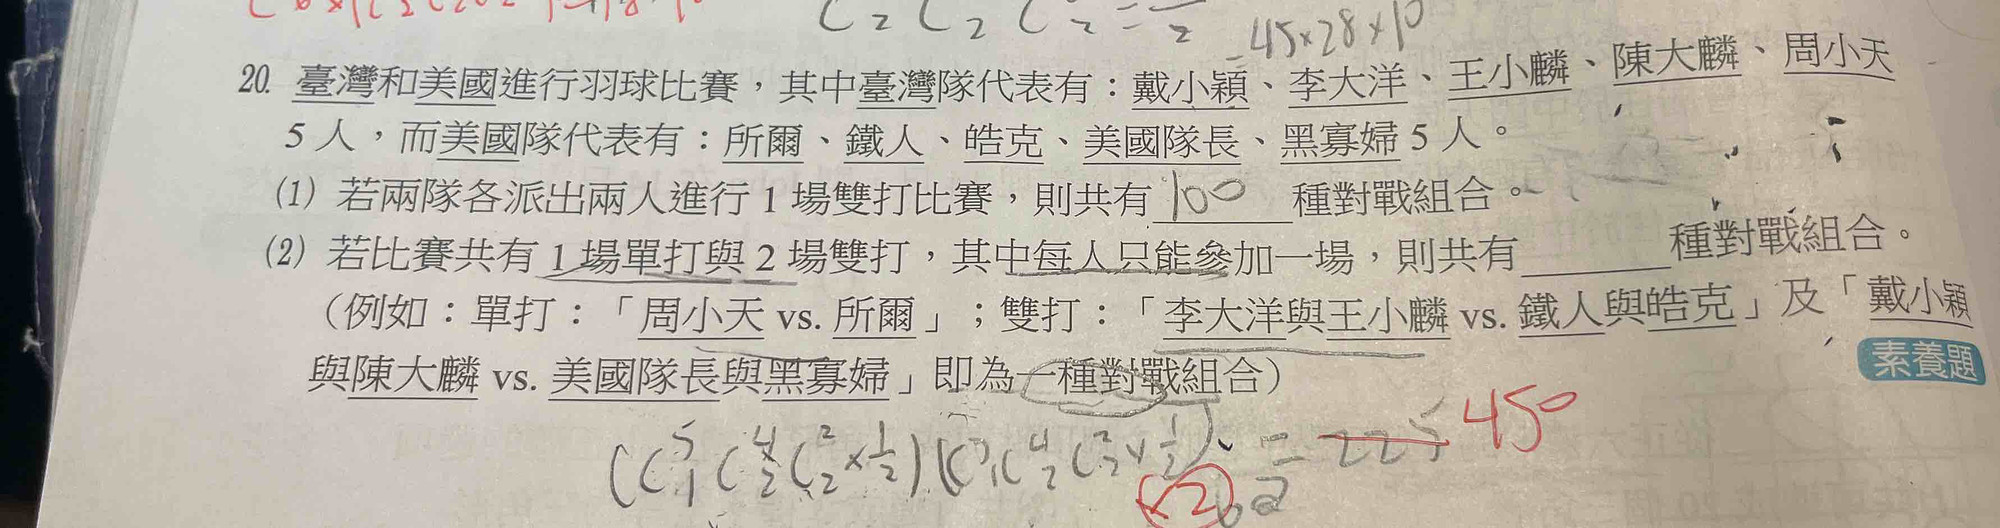 C₂ C₂ C₂ = 45×28×10
20. 臺灣和美國進行羽球比賽,其中臺灣隊代表有:戴小穎、李大洋、王小麟、陳大麟、周小天
5 人,而美國隊代表有:所爾、鐵人、皓克、美國隊長、黑寡婦 5 人。
(1) 若兩隊各派出兩人進行 1 場雙打比賽,則共有 100 種對戰組合。
(2) 若比賽共有 1 場單打與 2 場雙打,其中每人只能參加一場,則共有______種對戰組合。
(例如:單打:「周小天 vs. 所爾」;雙打:「李大洋與王小麟 vs. 鐵人與皓克」及「戴小穎
與陳大麟 vs. 美國隊長與黑寡婦」即為一種對戰組合)
素養題
(C⁵₁ C⁴₂ C²₂ × 1/2) (C⁵₁ C⁴₂ C²₂ × 1/2) = 225 450
×2